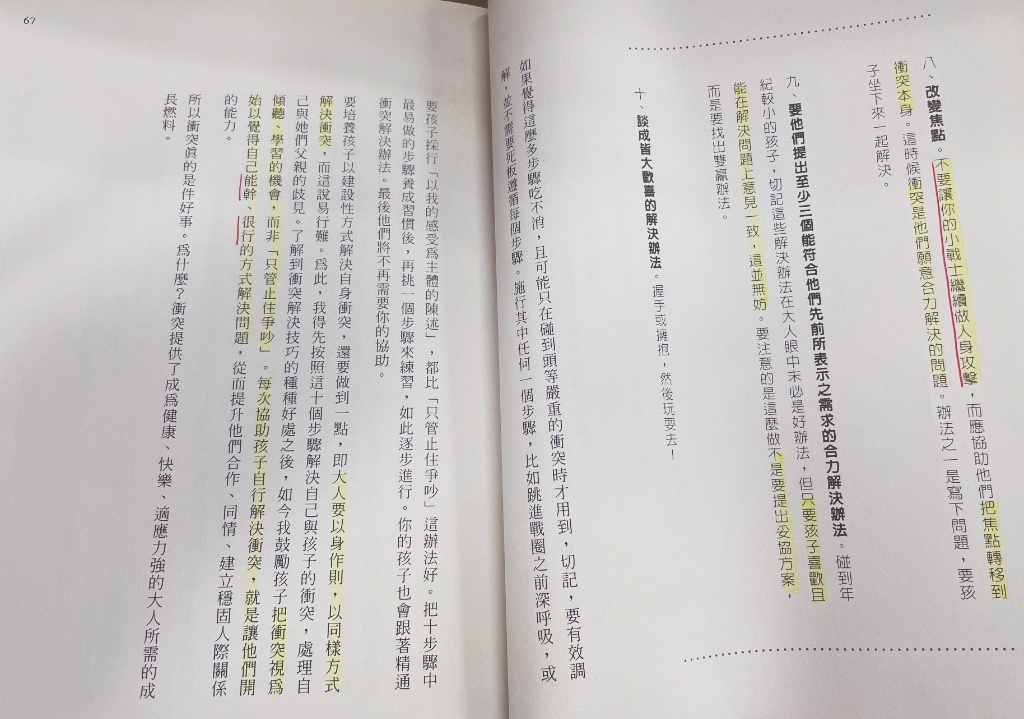 八、改變焦點。不要讓你的小戰士繼續做人身攻擊，而應協助他們把焦點轉移到
衝突本身。這時候衝突是他們願意合力解決的問題。辦法之一是寫下問題，要孩
子坐下來一起解決。
九、要他們提出至少三個能符合他們先前所表示之需求的合力解決辦法。碰到年
紀較小的孩子，切記這些解決辦法在大人眼中未必是好辦法，但只要孩子喜歡且
能在解決問題上意見一致，這並無妨。要注意的是這麼做不是要提出妥協方案，
而是要找出雙贏辦法。
十、談成皆大歡喜的解決辦法。握手或擁抱，然後玩耍去！
如果覺得這麼多步驟吃不消，且可能只在碰到頭等嚴重的衝突時才用到，切記，要有效調
解，並不需要死板遵循每個步驟。施行其中任何一個步驟，比如跳進戰圈之前深呼吸，或
要孩子採行「以我的感受為主體的陳述」，都比「只管止住爭吵」這辦法好。把十步驟中
最易做的步驟養成習慣後，再挑一個步驟來練習，如此逐步進行。你的孩子也會跟著精通
衝突解決辦法。最後他們將不再需要你的協助。
要培養孩子以建設性方式解決自身衝突，還要做到一點，即大人要以身作則，以同樣方式
解決衝突，而這說易行難。為此，我得先按照這十個步驟解決自己與孩子的衝突，處理自
己與她們父親的歧見。了解到衝突解決技巧的種種好處之後，如今我鼓勵孩子把衝突視為
傾聽、學習的機會，而非「只管止住爭吵」。每次協助孩子自行解決衝突，就是讓他們開
始以覺得自己能幹、很行的方式解決問題，從而提升他們合作、同情、建立穩固人際關係
的能力。
所以衝突真的是件好事。為什麼？衝突提供了成為健康、快樂、適應力強的大人所需的成
長燃料。
67